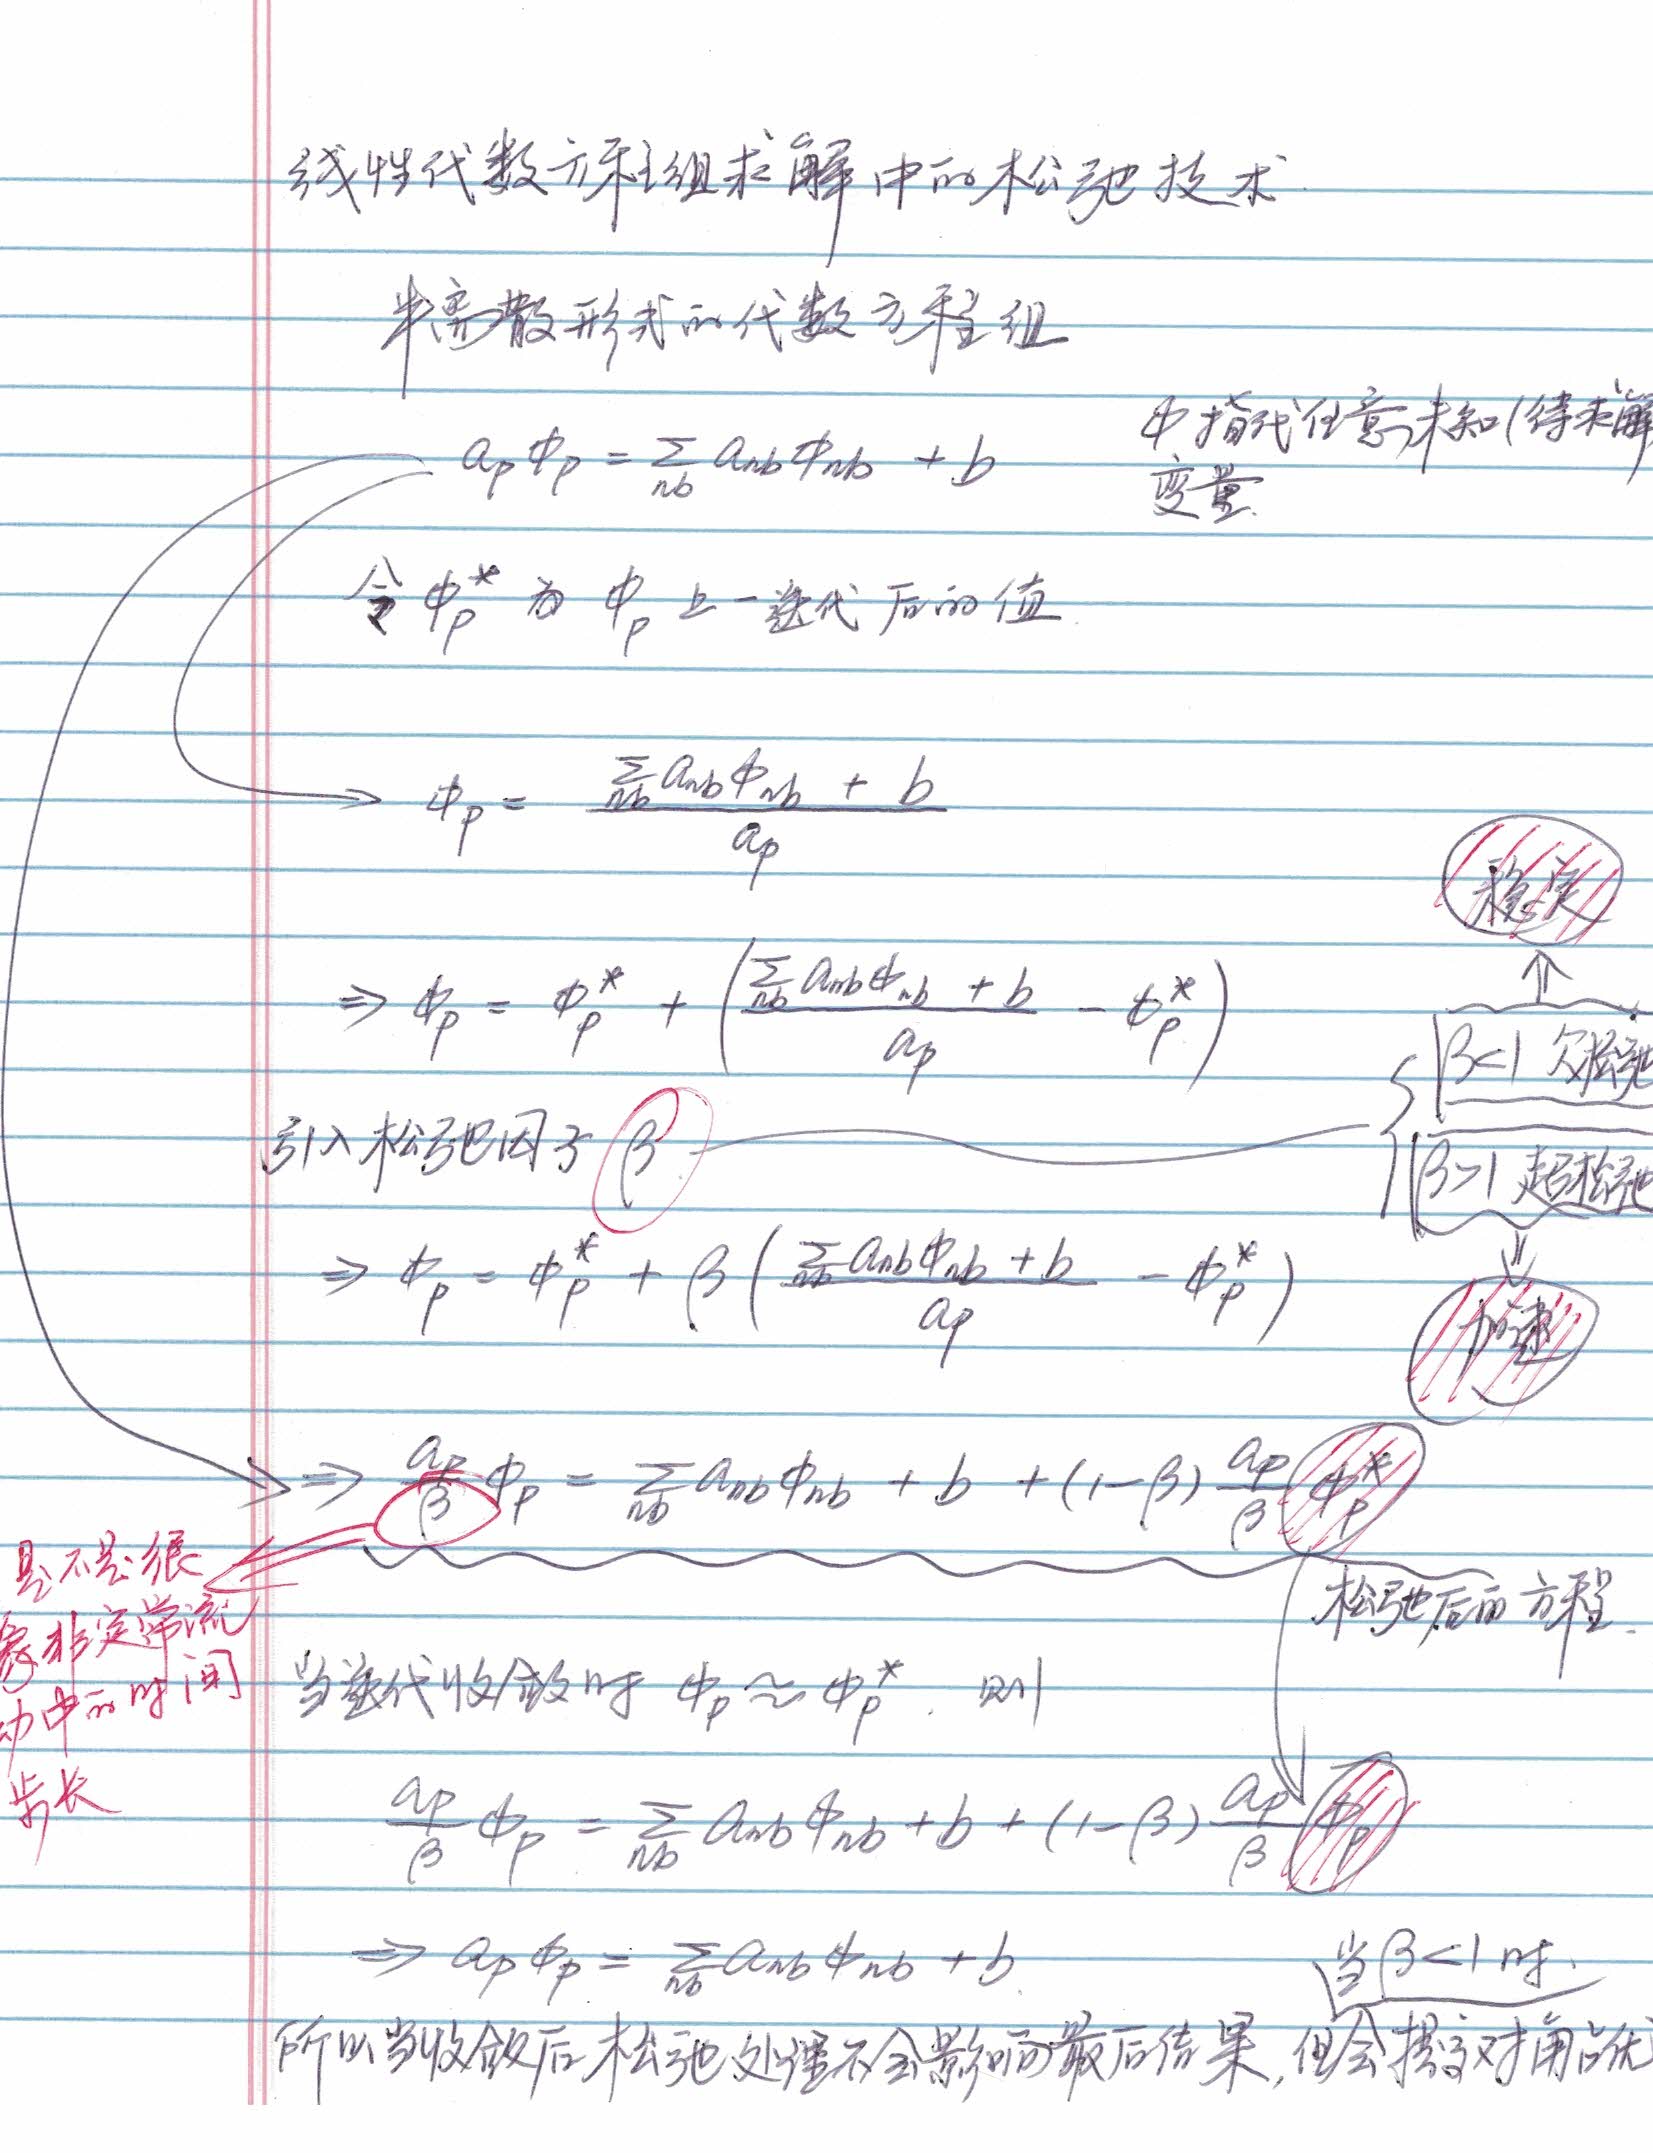 线性代数方程组求解中的松弛技术
半离散形式的代数方程组
a_P Φ_P = Σ_nb a_nb Φ_nb + b
Φ指代任意未知(待求解
变量
令 Φ_P^* 为 Φ_P 上一迭代后的值
Φ_P = (Σ_nb a_nb Φ_nb + b) / a_P
⇒ Φ_P = Φ_P^* + ( (Σ_nb a_nb Φ_nb + b) / a_P − Φ_P^* )
稳定
⇑
β<1 欠松弛
引入松弛因子 β
β>1 超松弛
⇓
加速
⇒ Φ_P = Φ_P^* + β ( (Σ_nb a_nb Φ_nb + b) / a_P − Φ_P^* )
⇒ (a_P / β) Φ_P = Σ_nb a_nb Φ_nb + b + (1−β) (a_P / β) Φ_P^*
松弛后的方程
是不是很
像非定常流
动中的时间
步长
当迭代收敛时 Φ_P ≈ Φ_P^* 则
(a_P / β) Φ_P = Σ_nb a_nb Φ_nb + b + (1−β) (a_P / β) Φ_P
⇒ a_P Φ_P = Σ_nb a_nb Φ_nb + b
当 β<1 时
所以当收敛后松弛处理不会影响最后结果,但会提高对角占优